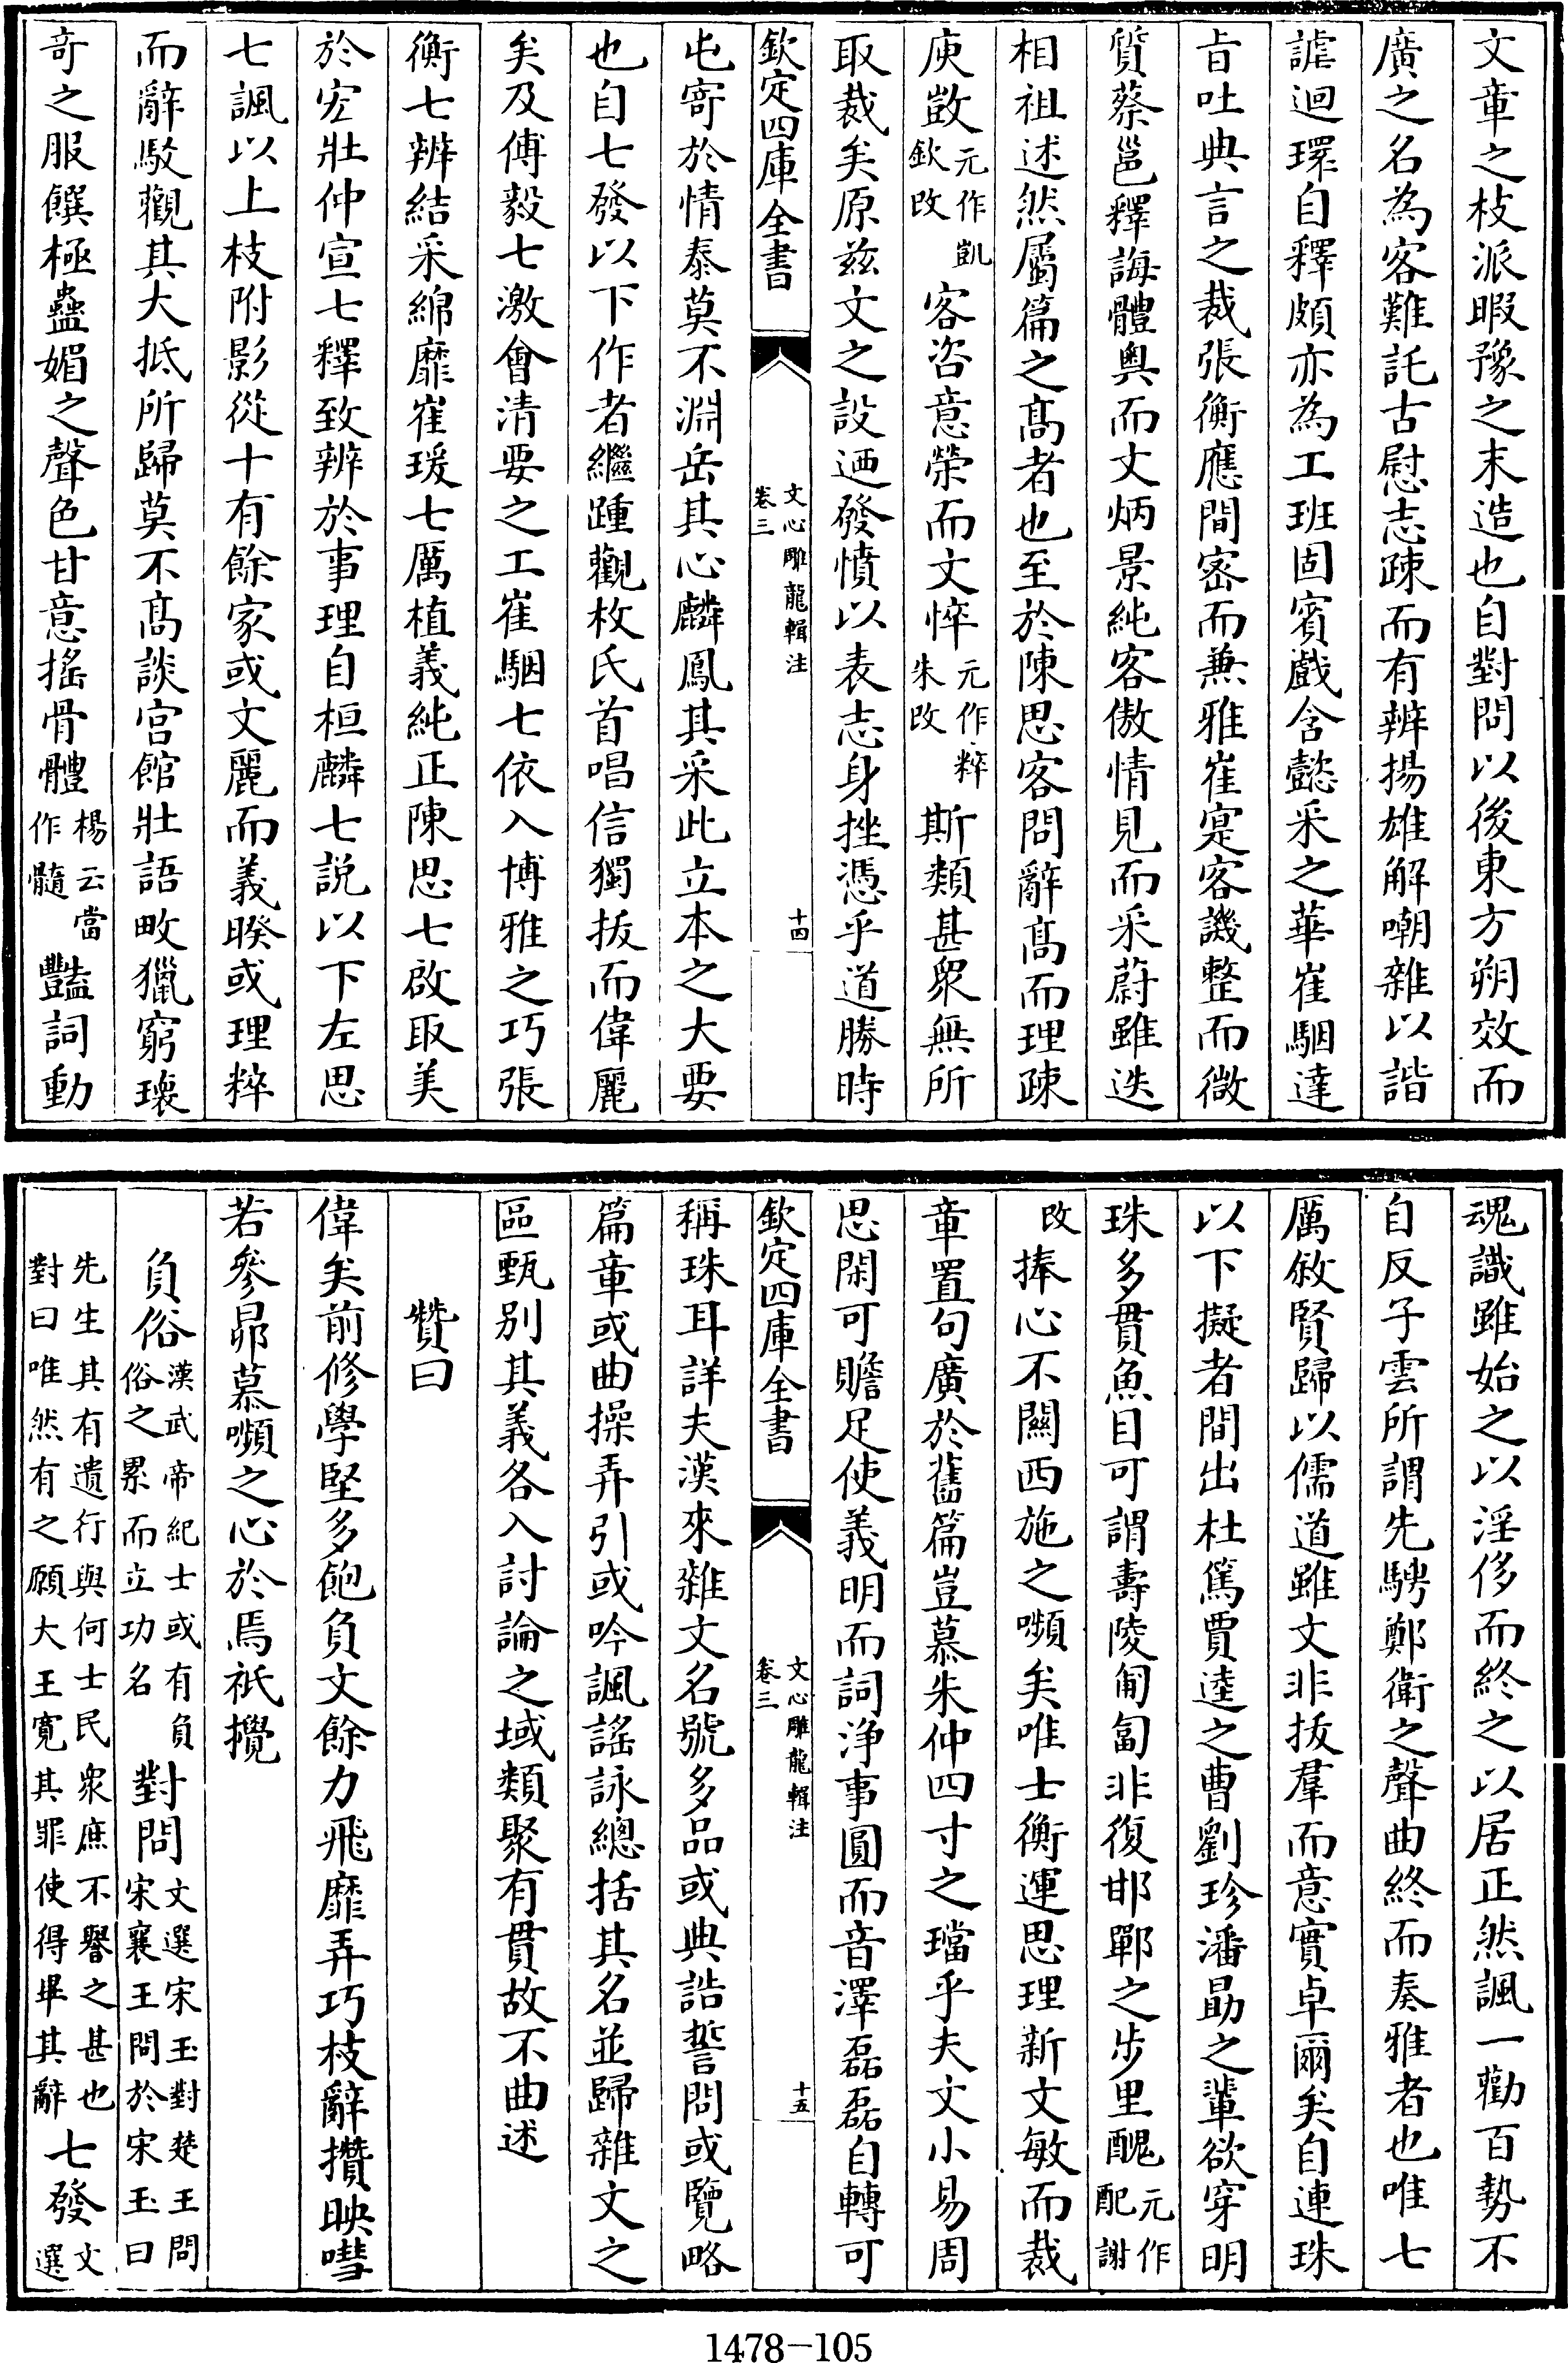 文章之枝派暇豫之末造也自對問以後東方朔效而
廣之名為客難託古慰志疎而有辨揚雄解嘲雜以諧
謔迴環自釋頗亦為工班固賓戲含懿采之華崔駰達
旨吐典言之裁張衡應間宻而兼雅崔寔客譏整而微
質蔡邕釋誨體奥而文炳景純客傲情見而采蔚雖迭
相祖述然屬篇之髙者也至於陳思客問辭髙而理疎
庾敱元作凱欽改客咨意榮而文悴元作粹朱改斯類甚衆無所
取裁矣原兹文之設迺發憤以表志身挫憑乎道勝時
欽定四庫全書 文心雕龍輯注卷三 十四
屯寄於情泰莫不淵岳其心麟鳳其采此立本之大要
也自七發以下作者繼踵觀枚氏首唱信獨拔而偉麗
矣及傅毅七激會清要之工崔駰七依入博雅之巧張
衡七辨結采綿靡崔瑗七厲植義純正陳思七啟取美
於宏壯仲宣七釋致辨於事理自桓麟七説以下左思
七諷以上枝附影從十有餘家或文麗而義暌或理粹
而辭駁觀其大抵所歸莫不髙談宫館壯語畋獵窮瓌
奇之服饌極蠱媚之聲色甘意搖骨體楊云當作髓豔詞動
魂識雖始之以淫侈而終之以居正然諷一勸百勢不
自反子雲所謂先騁鄭衛之聲曲終而奏雅者也唯七
厲敘賢歸以儒道雖文非拔羣而意實卓爾矣自連珠
以下擬者間出杜篤賈逵之曹劉珍潘勗之輩欲穿明
珠多貫魚目可謂壽陵匍匐非復邯鄲之步里醜元作配謝
改捧心不關西施之嚬矣唯士衡運思理新文敏而裁
章置句廣於舊篇豈慕朱仲四寸之璫乎夫文小易周
思閑可贍足使義明而詞浄事圓而音澤磊磊自轉可
欽定四庫全書 文心雕龍輯注卷三 十五
稱珠耳詳夫漢來雜文名號多品或典誥誓問或覽略
篇章或曲操弄引或吟諷謡詠總括其名並歸雜文之
區甄别其義各入討論之域類聚有貫故不曲述
贊曰
偉矣前修學堅多飽負文餘力飛靡弄巧枝辭攢映嘒
若參昴慕嚬之心於焉祇攪
負俗漢武帝紀士或有負俗之累而立功名對問文選宋玉對楚王問宋襄王問於宋玉曰
先生其有遺行與何士民衆庶不譽之甚也對曰唯然有之願大王寛其罪使得畢其辭七發文選
1478-105